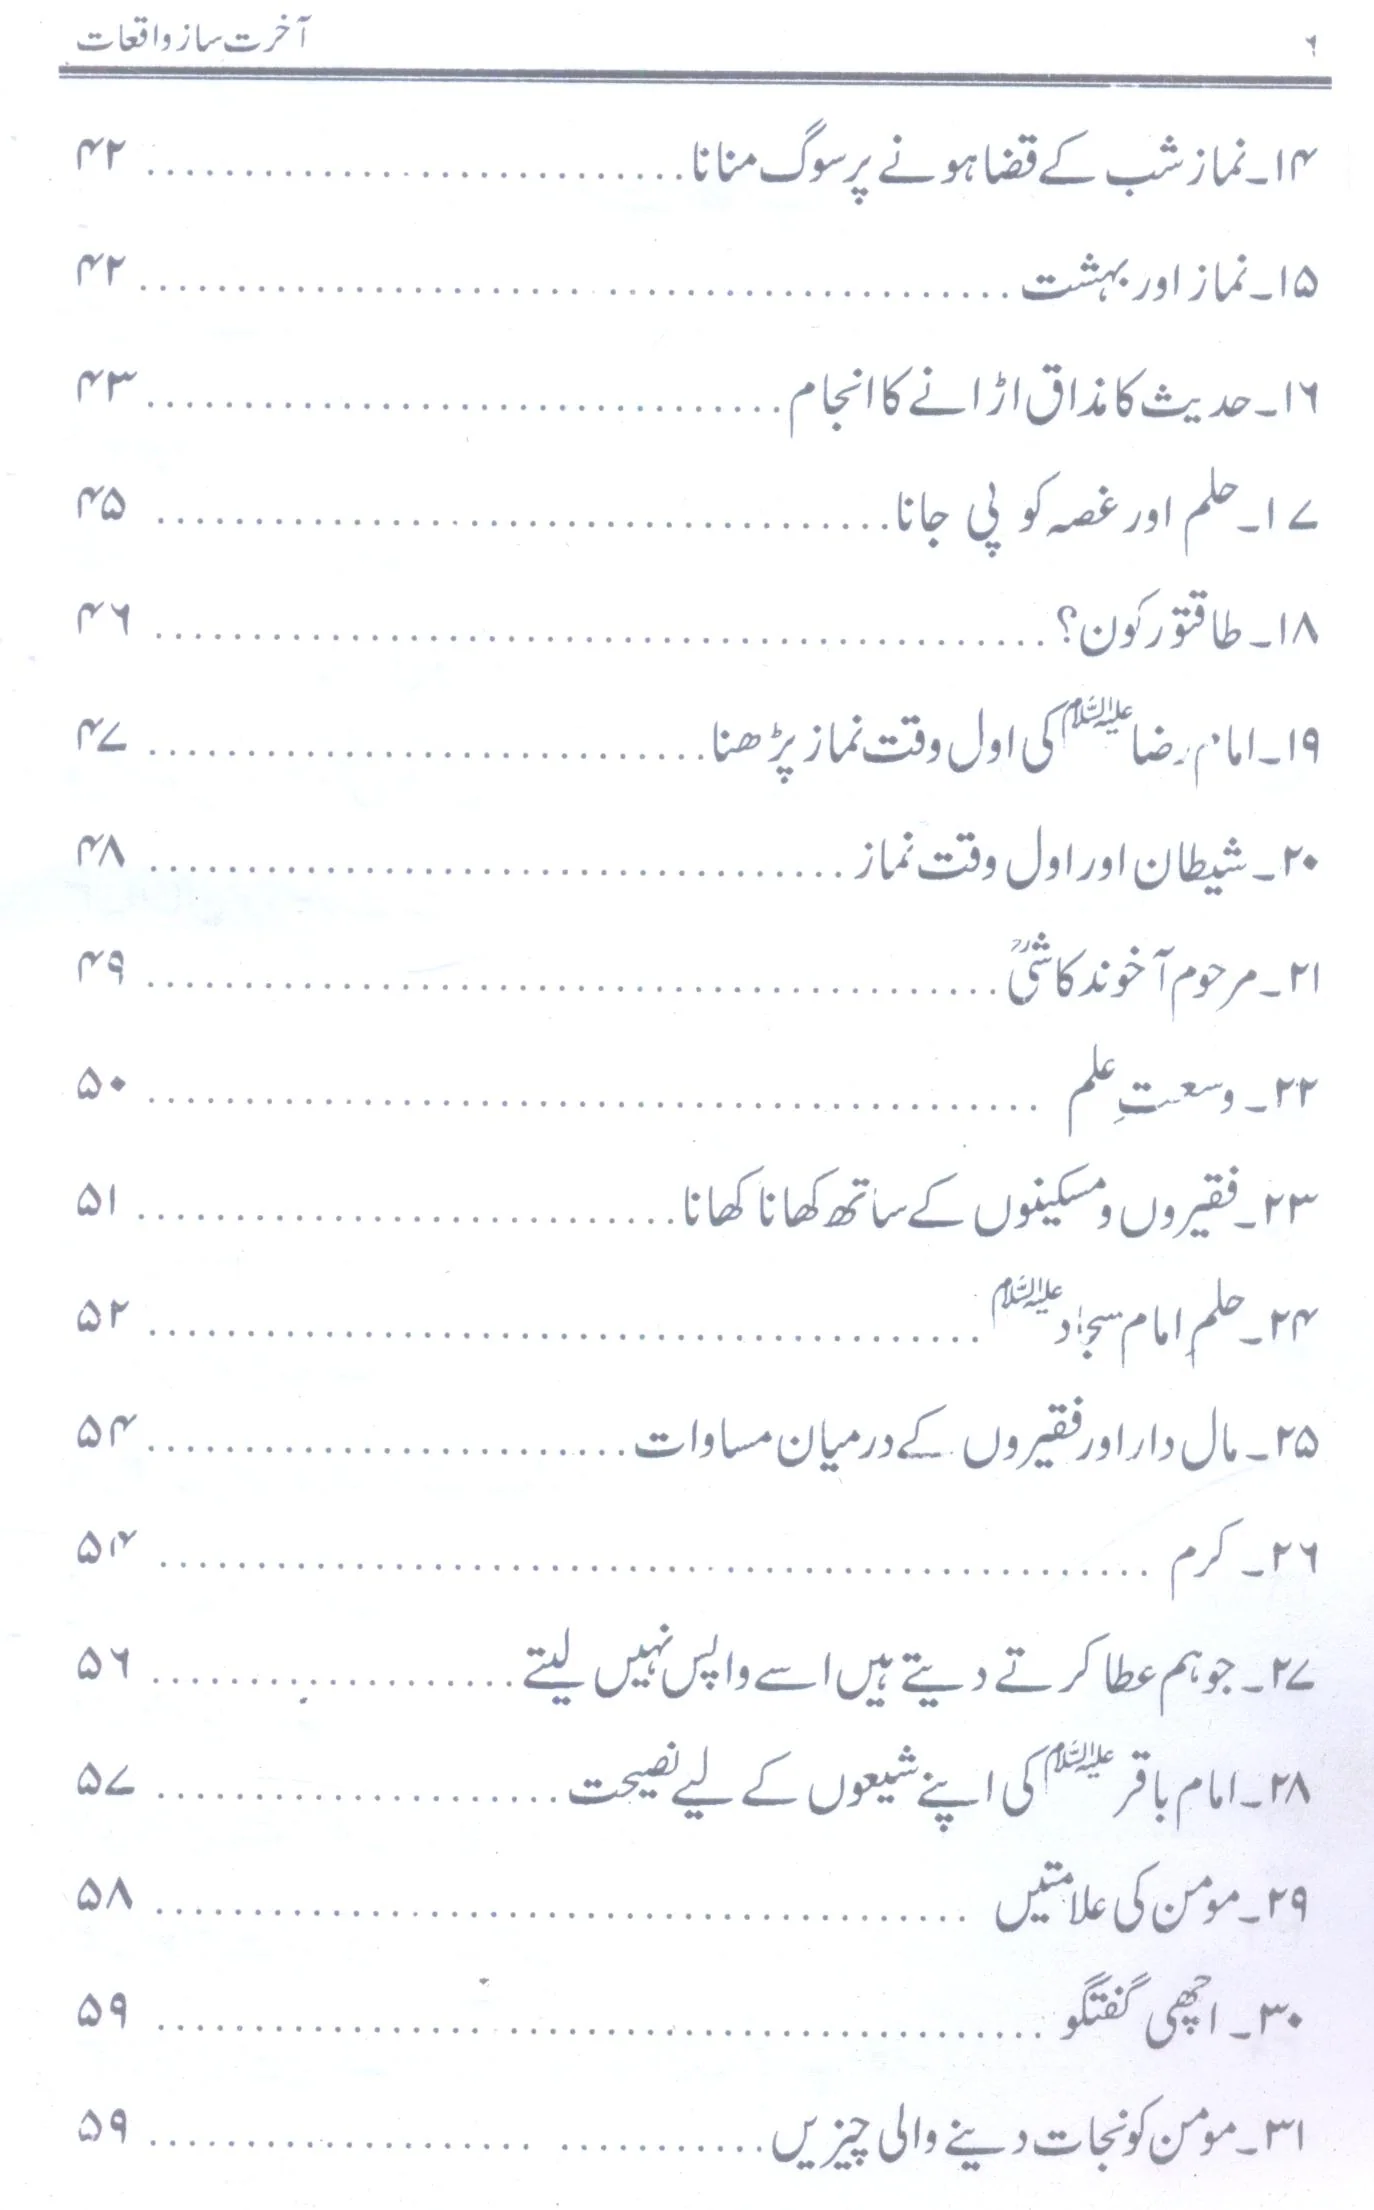 ۶ آخرت ساز واقعات
۱۴۔ نماز شب کے قضا ہونے پر سوگ منانا .............................. ۴۲
۱۵۔ نماز اور بہشت .............................. ۴۲
۱۶۔ حدیث کا مذاق اڑانے کا انجام .............................. ۴۳
۱۷۔ حلم اور غصہ کو پی جانا .............................. ۴۵
۱۸۔ طاقتور کون؟ .............................. ۴۶
۱۹۔ امام رضا علیہ السلام کی اول وقت نماز پڑھنا .............................. ۴۷
۲۰۔ شیطان اور اول وقت نماز .............................. ۴۸
۲۱۔ مرحوم آخوند کاشیؒ .............................. ۴۹
۲۲۔ وسعتِ علم .............................. ۵۰
۲۳۔ فقیروں و مسکینوں کے ساتھ کھانا کھانا .............................. ۵۱
۲۴۔ حلمِ امام سجاد علیہ السلام .............................. ۵۲
۲۵۔ مال دار اور فقیروں کے درمیان مساوات .............................. ۵۴
۲۶۔ کرم .............................. ۵۴
۲۷۔ جو ہم عطا کرتے دیتے ہیں اسے واپس نہیں لیتے .............................. ۵۶
۲۸۔ امام باقر علیہ السلام کی اپنے شیعوں کے لیے نصیحت .............................. ۵۷
۲۹۔ مومن کی علامتیں .............................. ۵۸
۳۰۔ اچھی گفتگو .............................. ۵۹
۳۱۔ مومن کو نجات دینے والی چیزیں .............................. ۵۹